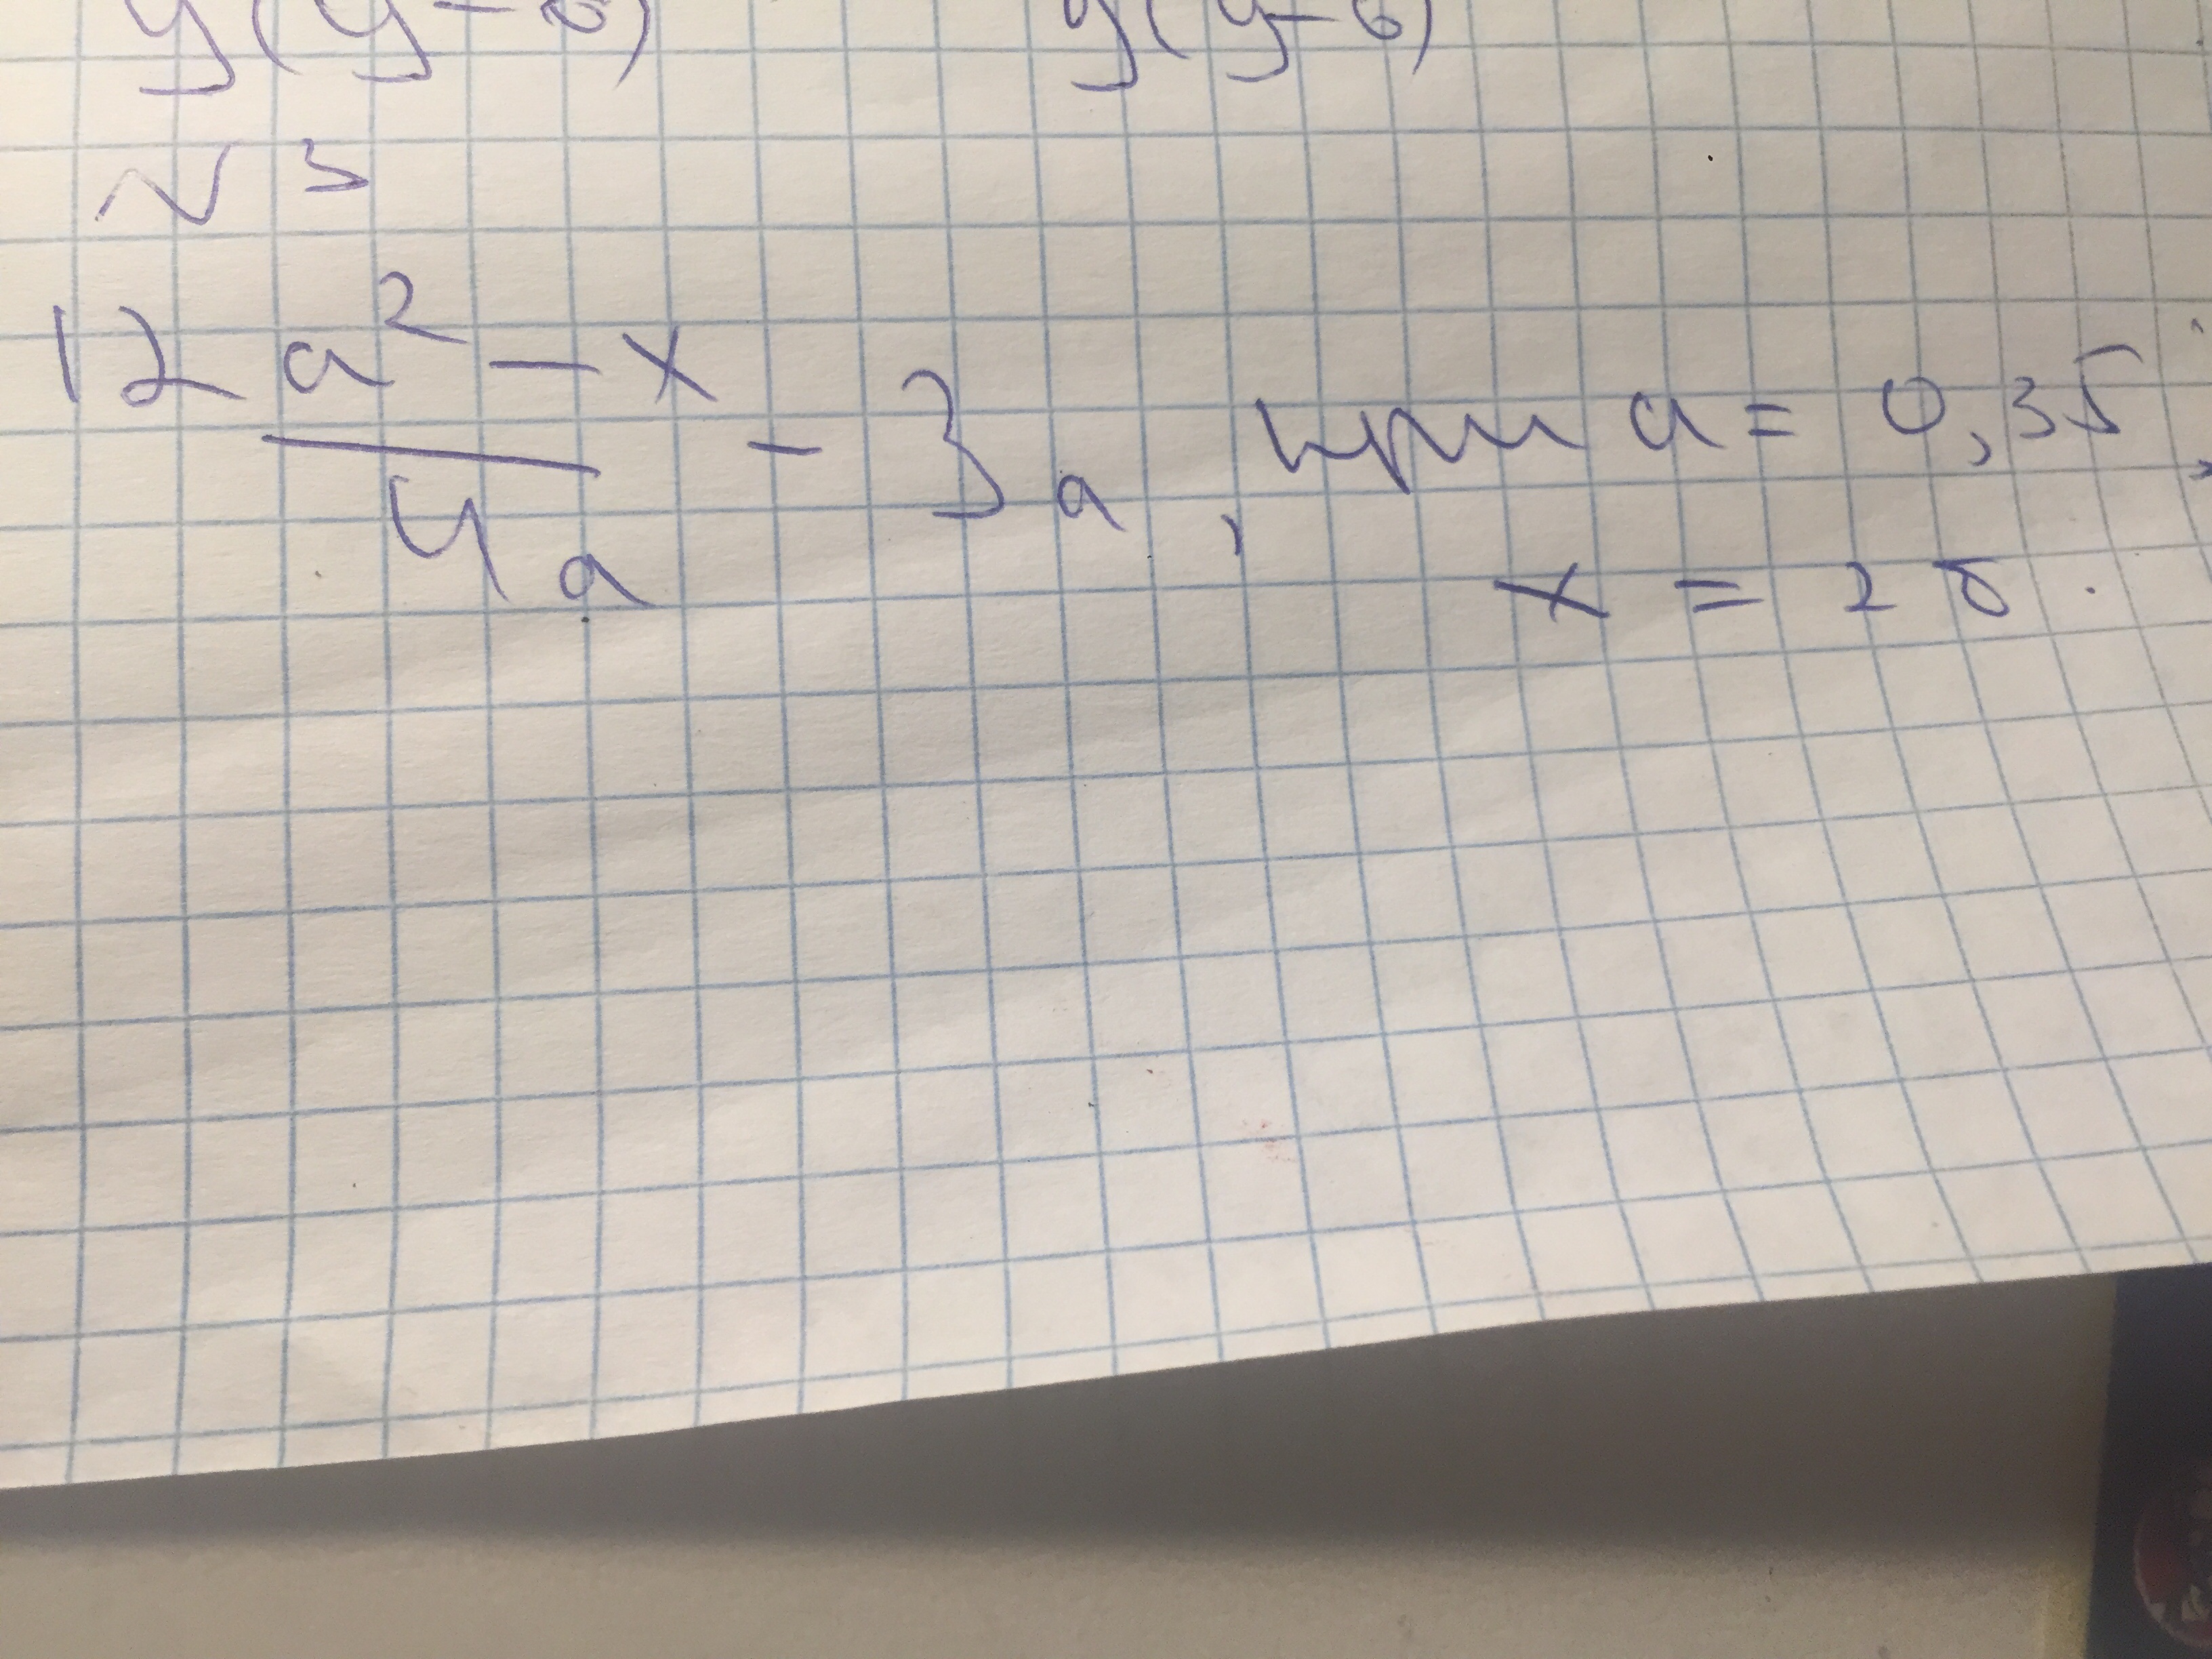 y(y-6) y(y-6)
N3
12a² - x
—— - 3a, при a = 0,35;
4a
x = 28.